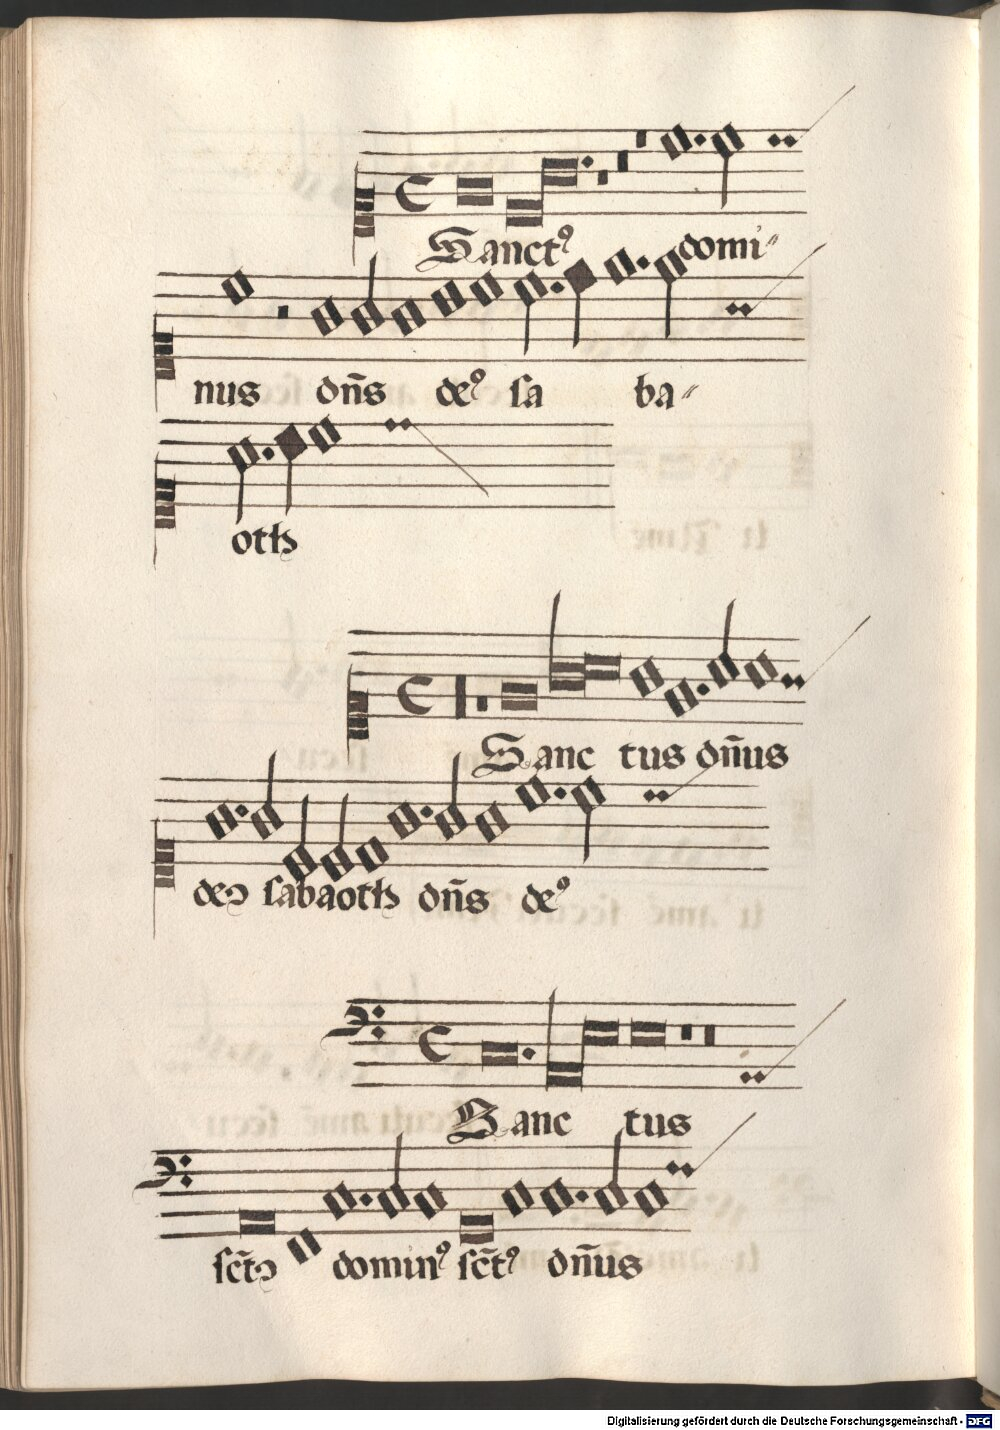 Sanctꝰ domi〃
nus dñs deꝰ sa ba〃
oth
Sanc tus dñus
deɔ sabaoth dñs deꝰ
Sanc tus
sct̃ɔ dominꝰ sct̃ꝰ dñus
Digitalisierung gefördert durch die Deutsche Forschungsgemeinschaft - DFG